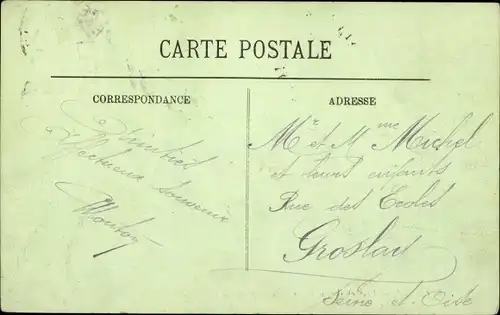 CARTE POSTALE
CORRESPONDANCE
ADRESSE
affectueux souvenir
Mr et Mme Michel
et leurs enfants
Rue des Ecoles
Groslay
Seine et Oise